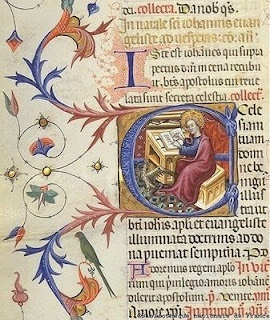 collecta. Da nob qs.
In natale sci iohannis euan
geliste ad
Iste est iohanes qui supra
pectus dni in cena recubu
it: btus apostolus cui reue
lata sunt secreta celestia. collect.
Ecele
siam
tuam
domi
ne be
nign
illustra ut
bti iohis apli et euangeliste
illuminata doctrinis ad do
na pueniat sempitna. p do
Adoremus regem aplo
qui priuilegio amoris iohan
apostolum.
amore xpi. In primo